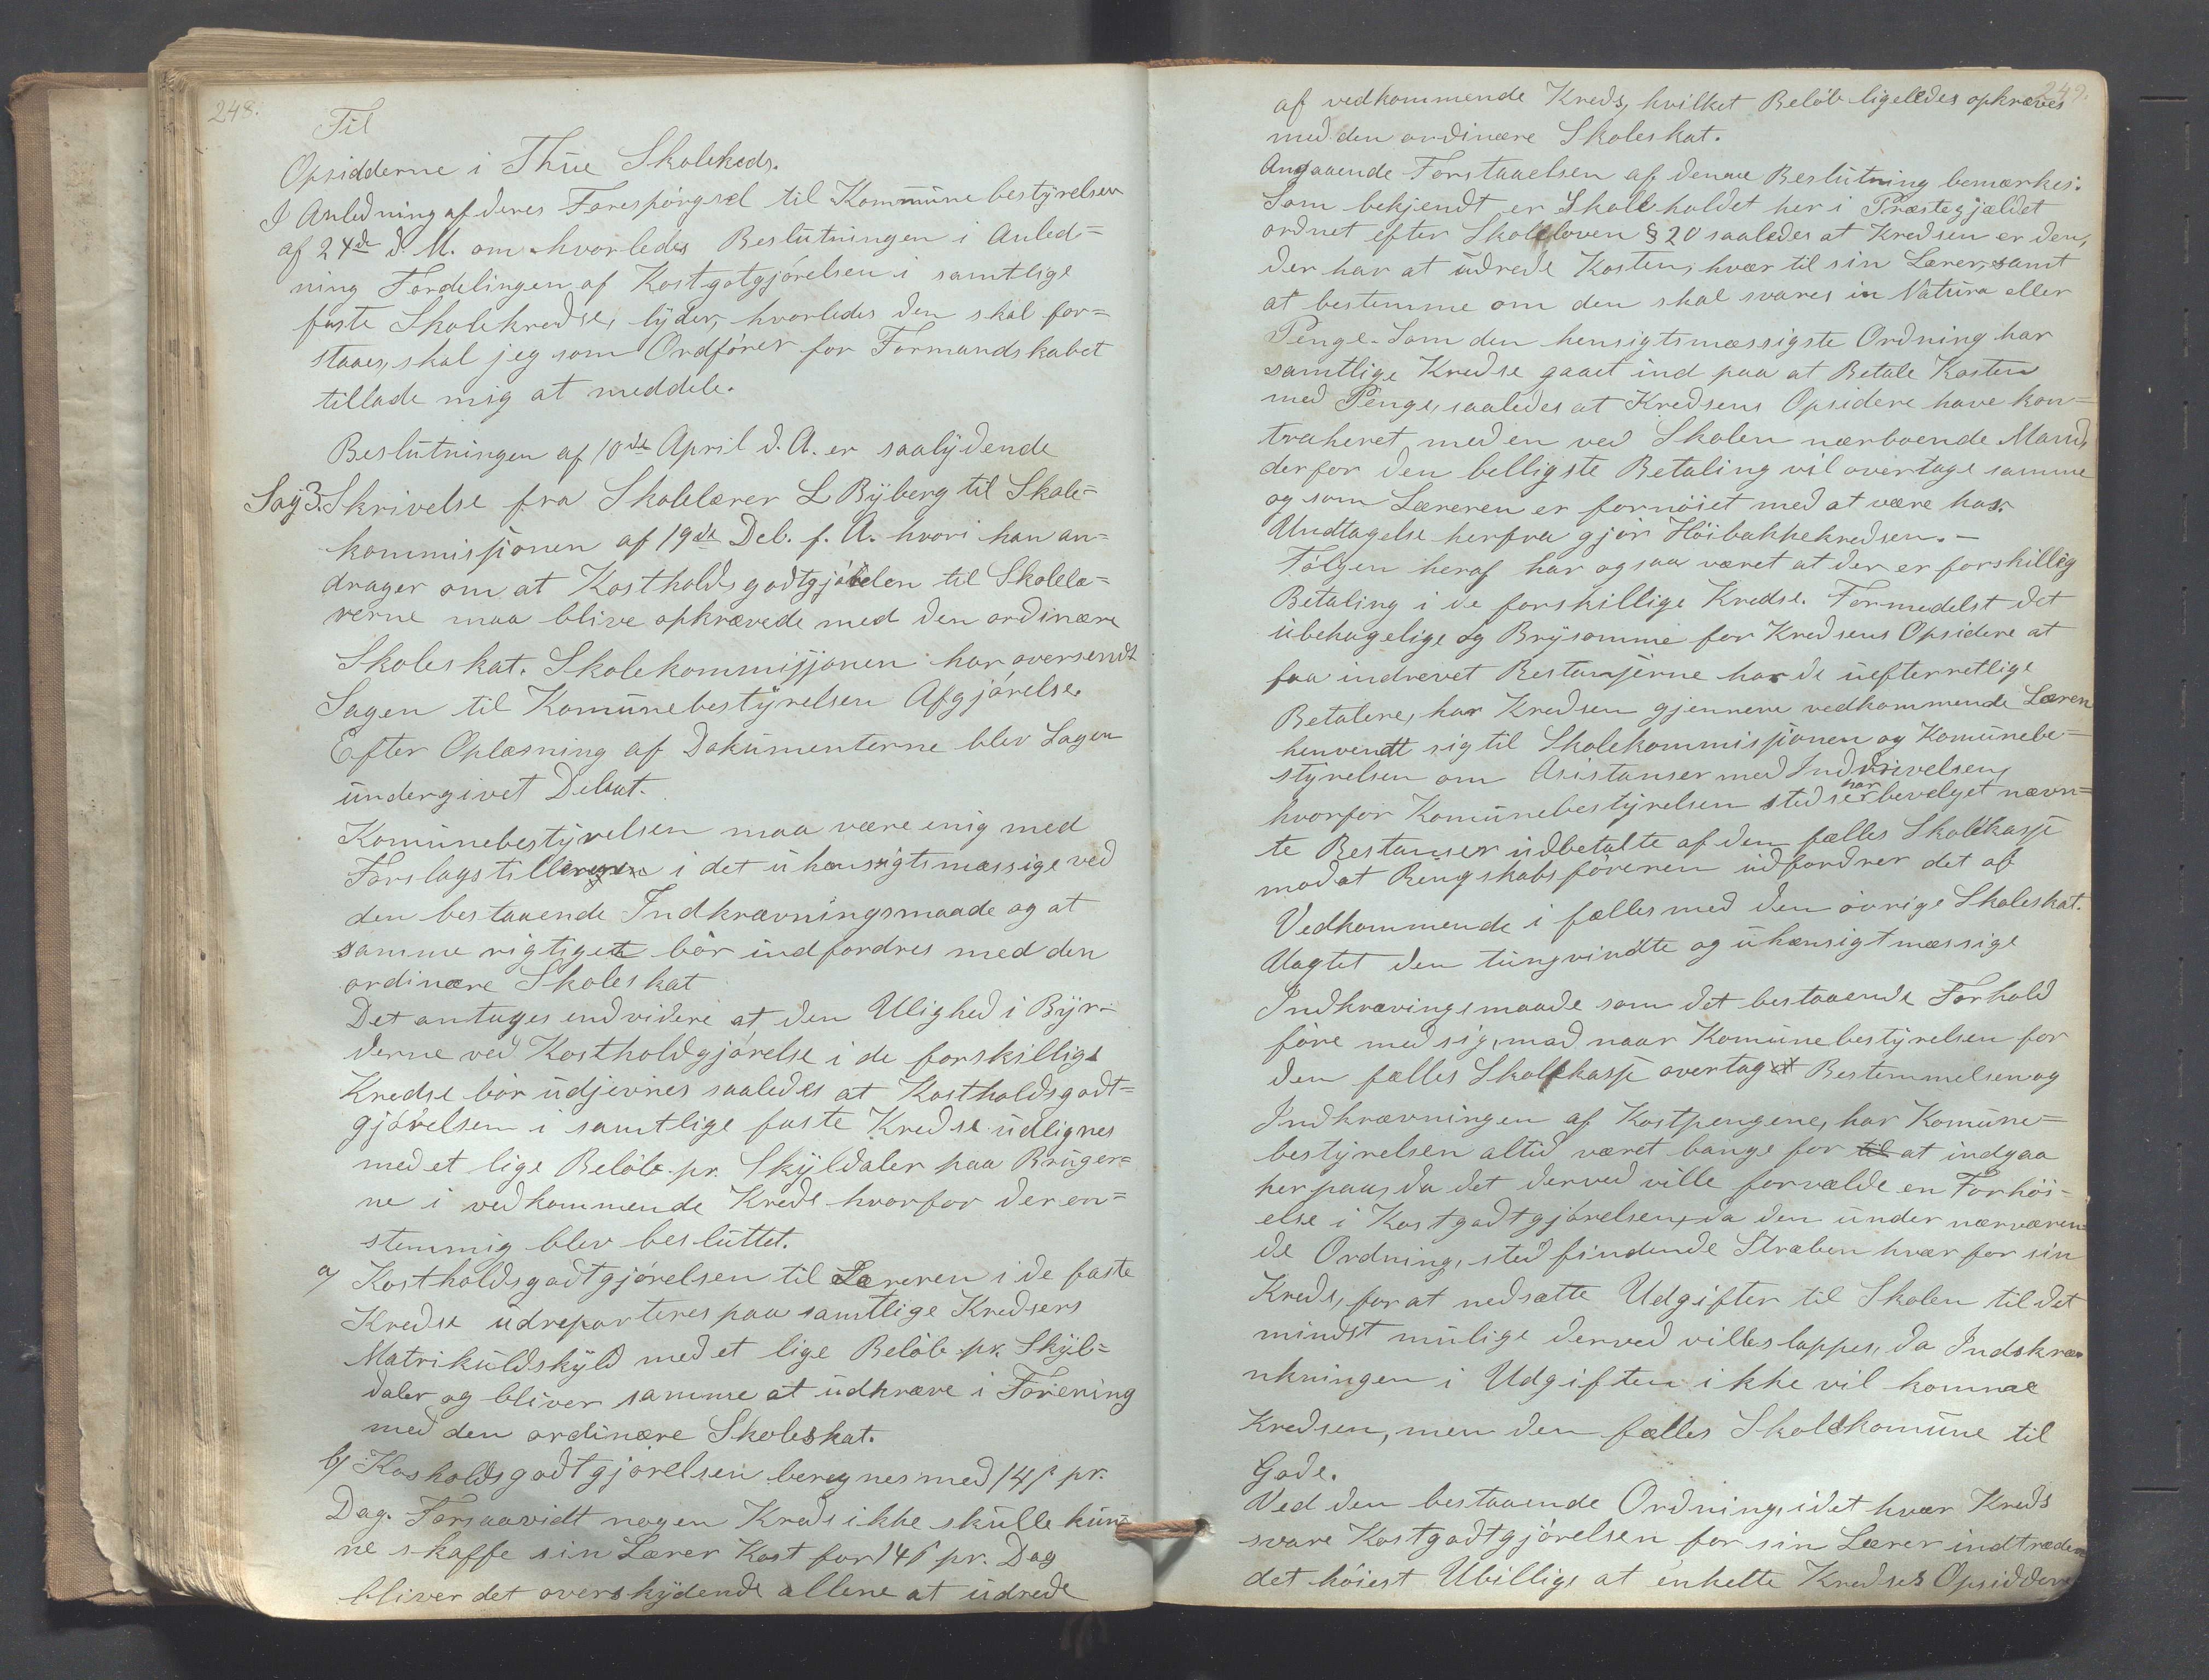 248.
Til
Opsidderne i Thue Skolekeds.
I Anledning af deres Forespørgsel til Kommunebestyrelsen
af 24de d. M. om hvorledes Beslutningen i Anled=
ning Fordelingen af Kostgotgjørelsen i samtlige
faste Skolekredse, lyder, hvorledes den skal for=
staaes, skal jeg som Ordfører for Formandskabet
tillade mig at meddele.
Beslutningen af 10de April d. A. er saalydende
Sag 3. Skrivelse fra Skolelærer L Byberg til Skole=
kommissionen af 19de Deb. f. A. hvori han an=
drager om at Kostholdsgodtgjørelen til Skolelæ=
rerne maa blive opkrævede med den ordinære
Skoleskat. Skolekommissjonen har oversendt
Sagen til Komunebestyrelsen Afgjørelse.
Efter Oplæsning af Dokumenterne blev Sagen
undergivet Debat.
Komunebestyrelsen maa være enig med
Forslagstilleren i det uhensigtsmæssige ved
den bestaaende Indkrævningsmaade og at
samme rigtigete bør indfordres med den
ordinære Skoleskat
Det antages endvidere at den Ulighed i Byr=
derne ved Kostholdgjørelse i de forskillige
Kredse bør udjevnes saaledes at Kostholdsgodt=
gjørelsen i samtlige faste Kredse udlignes
med et lige Beløb pr. Skyldaler paa Bruger=
ne i vedkommende Kreds hvorfor der en=
stemmig blev besluttet.
a) Kostholdsgodtgjørelsen til Læreren i de faste
Kredse udreparteres paa samtlige Kredsers
Matrikuldskyld med et lige Beløb pr. Skyl=
daler og bliver samme at udkræve i Forening
med den ordinære Skoleskat.
b) Kosholdsgodtgjørelsen beregnes med 14 s pr.
Dag. Forsaavidt nogen Kreds ikke skulle kun=
ne skaffe sin Lærer Kost for 14 s pr. Dag
bliver det overskydende allene at udrede
249.
af vedkommende Kreds, hvilket Beløb ligeledes opkræves
med den ordinære Skoleskat.
Angaaende Forstaaelsen af denne Beslutning bemærkes:
Som bekjendt er Skoleholdet her i Præstegjældet
ordnet efter Skoleloven § 20 saaledes at Kredsen er den,
der har at udrede Kosten, hvær til sin Lærer, samt
at bestemme om den skal svares in Natura eller
Penge. Som den hensigtsmæssigste Ordning har
samtlige Kredse gaaet ind paa at Betale Kosten
med Penge, saaledes at Kredsens Opsidere have kon=
traheret med en ved Skolen nærboende Mand,
der for den belligste Betaling vil overtage samme
og som Læreren er fornøiet med at være hos.
Undtagelse herfra gjør Høibakkekredsen. —
Følgen heraf har ogsaa været at der er forskillig
Betaling i de forskillige Kredse. Formedelst det
ubehagelige og Brysomme for Kredsens Opsidere at
faa indrevet Restanserne hos de uefterretlige
Betalere, har Kredsen gjennem vedkommende Læren
henvendt sig til Skolekommissionen og Komunebe=
styrelsen om Asistanser med Inddrivelsen,
hvorfor Komunebestyrelsen stedse har bevelget nævn=
te Restanser udbetalte af den fælles Skolekasse
mod at Rengskabsføreren udfordrer det af
Vedkommende i fælles med den øvrige Skoleskat.
Uagtet den tungvindte og uhensigtmæssige
Indkrævingsmaade som det bestaaende Forhold
føre med sig, mod naar Komunebestyrelsen for
den fælles Skolekasse overtaget Bestemmelsen og
Indkrævningen af Kostpengene, har Komune=
bestyrelsen altid været bange for til at indgaa
herpaa, da det derved ville forvælde en Forhøi=
else i Kostgodtgjørelsen, da den under nærværen
de Ordning, stedfindende Stræben hvær for sin
Kreds, for at nedsætte Udgifter til Skolen til det
mindst mulige derved ville slappes, da Indskræ
nkningen i Udgiften ikke vil komme
Kredsen, men den fælles Skolekomune til
Gode.
Ved den bestaaende Ordning, idet hvær Kreds
svare Kostgodtgjørelsen for sin Lærer indtræder
det høiest Ubillige at enkelte Kredses Opsiddere